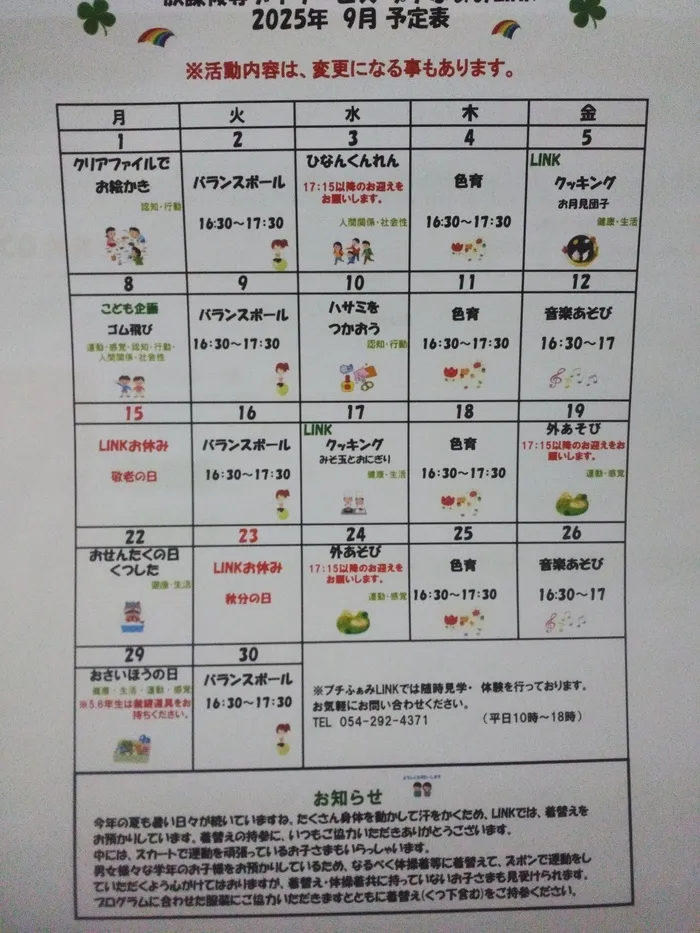 2025年 9月 予定表
※活動内容は、変更になる事もあります。
月 火 水 木 金
1 2 3 4 5
クリアファイルで
お絵かき
認知・行動
バランスボール
16:30～17:30
ひなんくんれん
17:15以降のお迎えを
お願いします。
人間関係・社会性
色育
16:30～17:30
LINK
クッキング
お月見団子
健康・生活
8 9 10 11 12
こども企画
ゴム飛び
運動・感覚・認知・行動・
人間関係・社会性
バランスボール
16:30～17:30
ハサミを
つかおう
認知・行動
色育
16:30～17:30
音楽あそび
16:30～17
15 16 17 18 19
LINKお休み
敬老の日
バランスボール
16:30～17:30
LINK
クッキング
みそ玉とおにぎり
健康・生活
色育
16:30～17:30
外あそび
17:15以降のお迎えをお
願いします。
運動・感覚
22 23 24 25 26
おせんたくの日
くつした
健康・生活
LINKお休み
秋分の日
外あそび
17:15以降のお迎えを
お願いします。
運動・感覚
色育
16:30～17:30
音楽あそび
16:30～17
29 30
おさいほうの日
健康・生活・運動・感覚
※5.6年生は裁縫道具をお
持ちください。
バランスボール
16:30～17:30
※プチふぁみLINKでは随時見学・ 体験を行っております。
お気軽にお問い合わせください。
TEL 054-292-4371 （平日10時～18時）
お知らせ
今年の夏も暑い日々が続いていますね。たくさん身体を動かして汗をかくため、LINKでは、着替えを
お預かりしています。着替えの持参に、いつもご協力いただきありがとうございます。
中には、スカートで運動を頑張っているお子さまもいらっしゃいます。
男女様々な学年のお子様をお預かりしているため、なるべく体操着等に着替えて、ズボンで運動をし
ていただくよう心がけてはおりますが、着替え・体操着共に持っていないお子さまも見受けられます。
プログラムに合わせた服装にご協力いただきますとともに着替え(くつ下含む)をご持参ください。